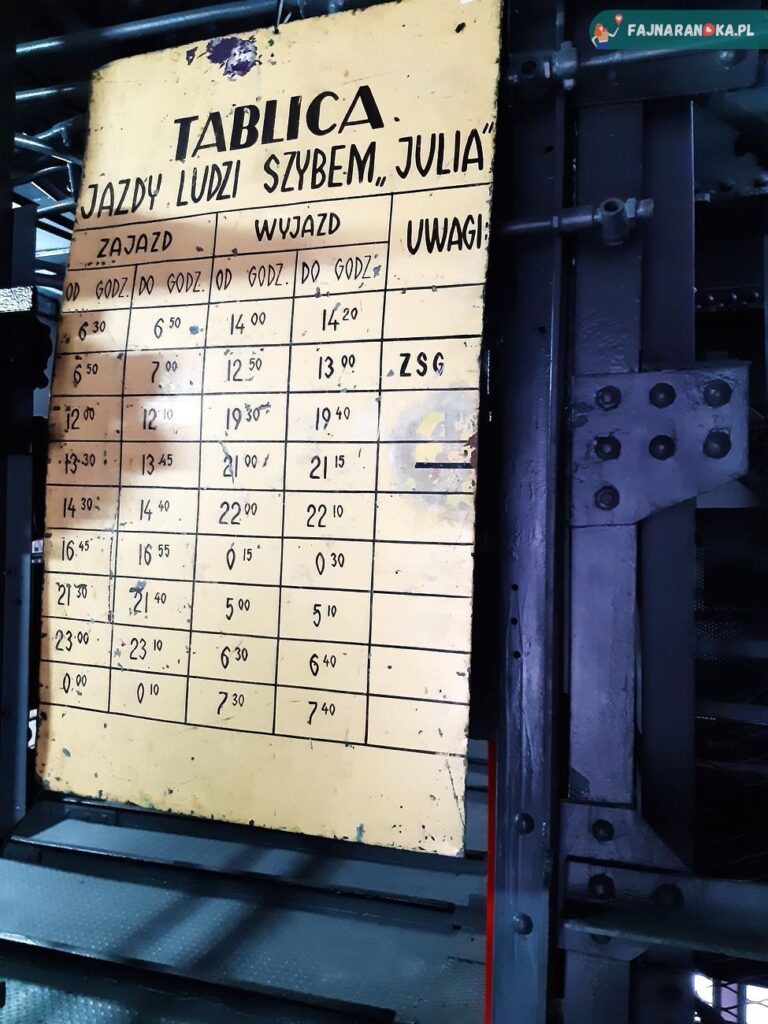 FAJNARANOKA.PL
TABLICA.
JAZDY LUDZI SZYBEM „JULIA"
ZAJAZD WYJAZD UWAGI:
OD GODZ. DO GODZ. OD GODZ. DO GODZ.
6 30 6 50 14 00 14 20
6 50 7 00 12 50 13 00 ZSG
12 00 12 10 19 30 19 40
13 30 13 45 21 00 21 15 —
14 30 14 40 22 00 22 10
16 45 16 55 0 15 0 30
21 30 21 40 5 00 5 10
23 00 23 10 6 30 6 40
0 00 0 10 7 30 7 40